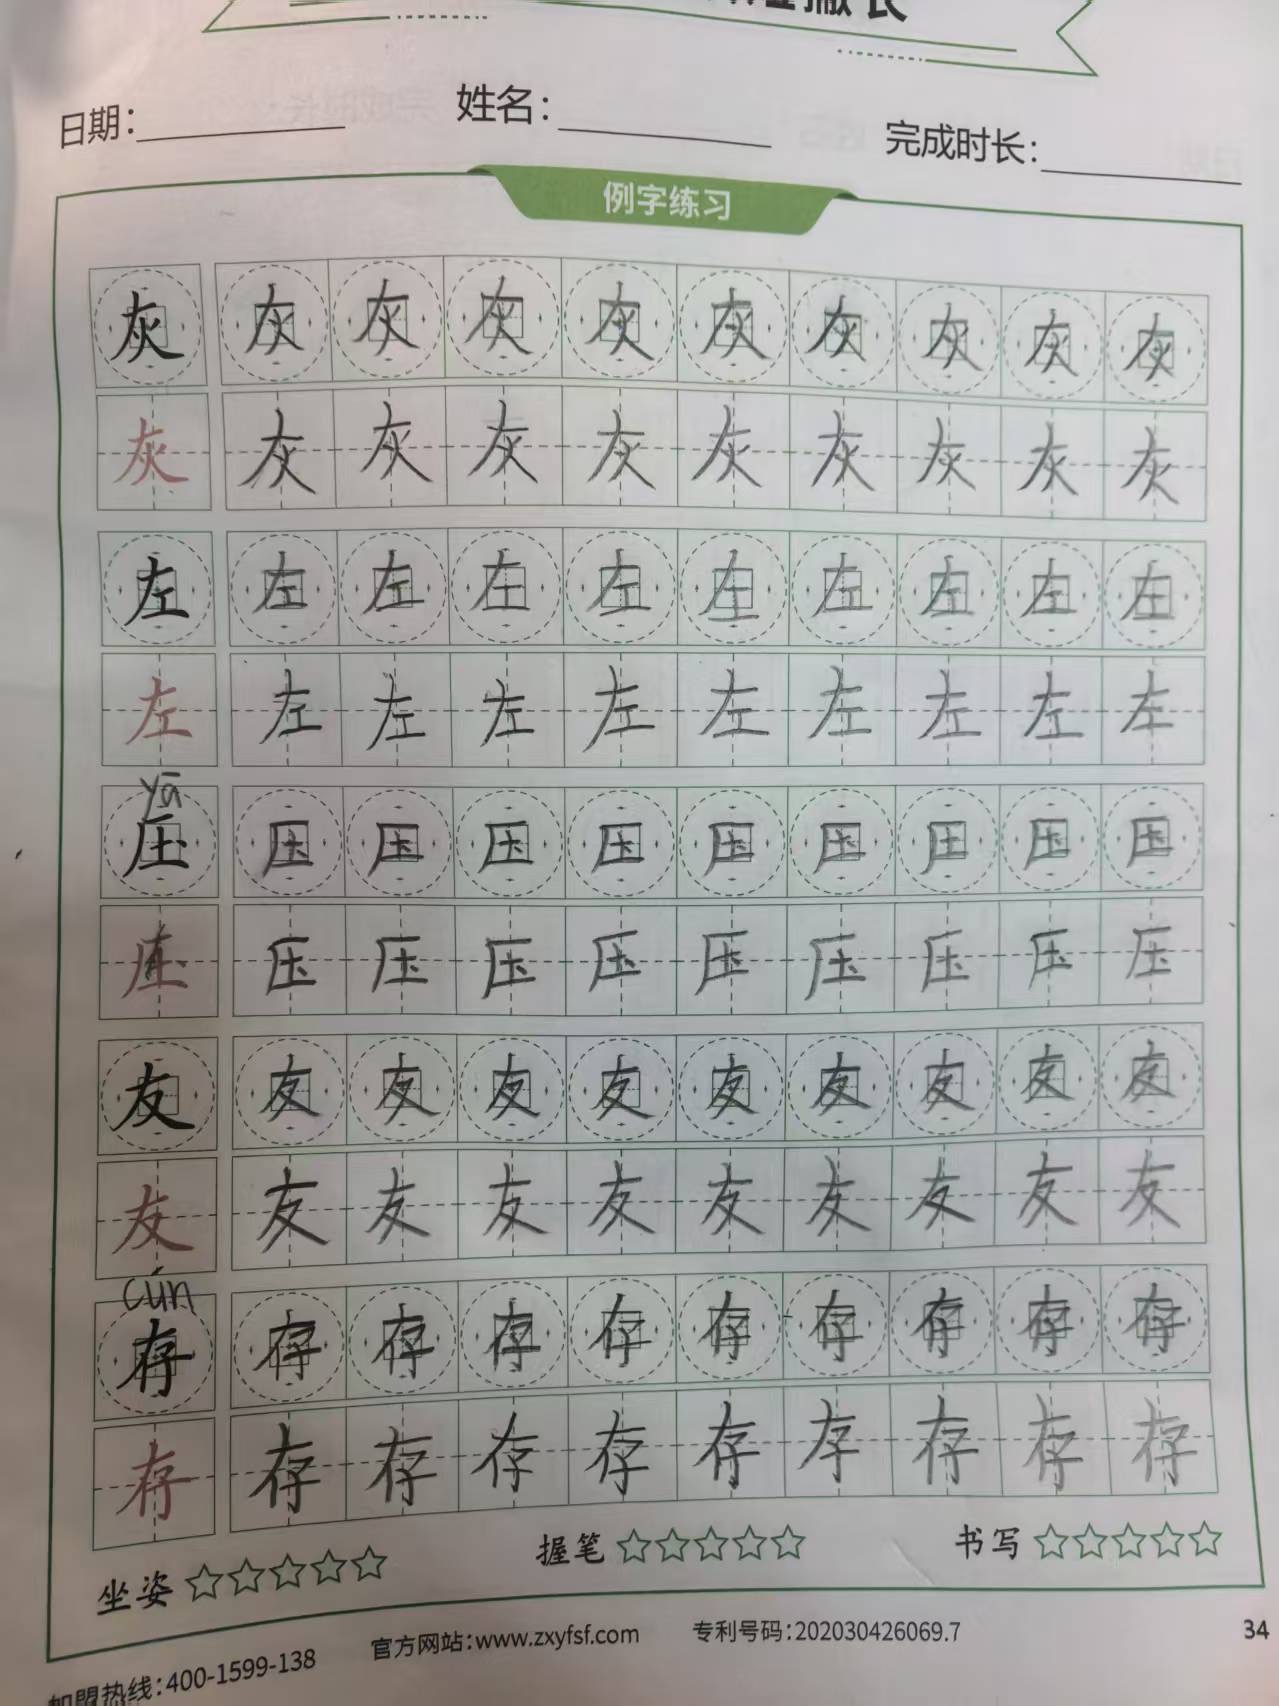 撇长
日期： 姓名： 完成时长：
例字练习
灰 灰 灰 灰 灰 灰 灰 灰 灰 灰
灰 灰 灰 灰 灰 灰 灰 灰 灰 灰
左 左 左 左 左 左 左 左 左 左
左 左 左 左 左 左 左 左 左 左
yā
压 压 压 压 压 压 压 压 压 压
压 压 压 压 压 压 压 压 压 压
友 友 友 友 友 友 友 友 友 友
友 友 友 友 友 友 友 友 友 友
cún
存 存 存 存 存 存 存 存 存 存
存 存 存 存 存 存 存 存 存 存
坐姿 握笔 书写
加盟热线：400-1599-138 官方网站：www.zxyfsf.com 专利号码：202030426069.7 34